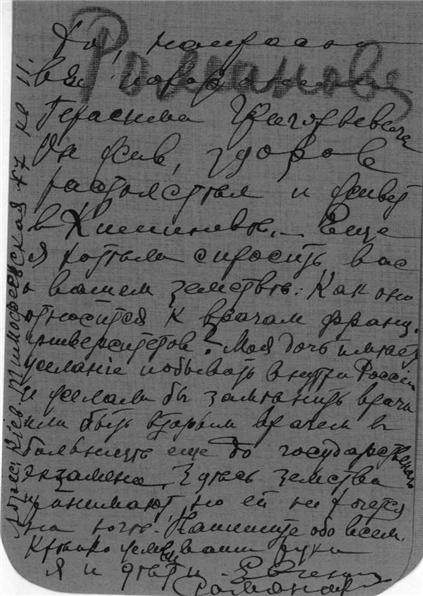 Да, напрасно
Романов
вы похоронили
Герасима Григорьевича
Он жив, здоров
растолстел и живет
в Кишиневѣ. Еще
я хотела спросить вас
о вашем земствѣ: Как оно
относится к врачам франц.
университетов? Моя дочь имѣет
желание побывать внутри России
и желала бы замѣнить врача
или быть вторым врачем в
больницѣ еще до государственного
экзамена. Здѣсь земства
принимают, но ей не хочется
на югѣ. Напишите обо всем.
Крѣпко жмем ваши руки
я и дѣти Евгения
Романова
Адрес: Кiев Тимофеевская #7 кв 11.